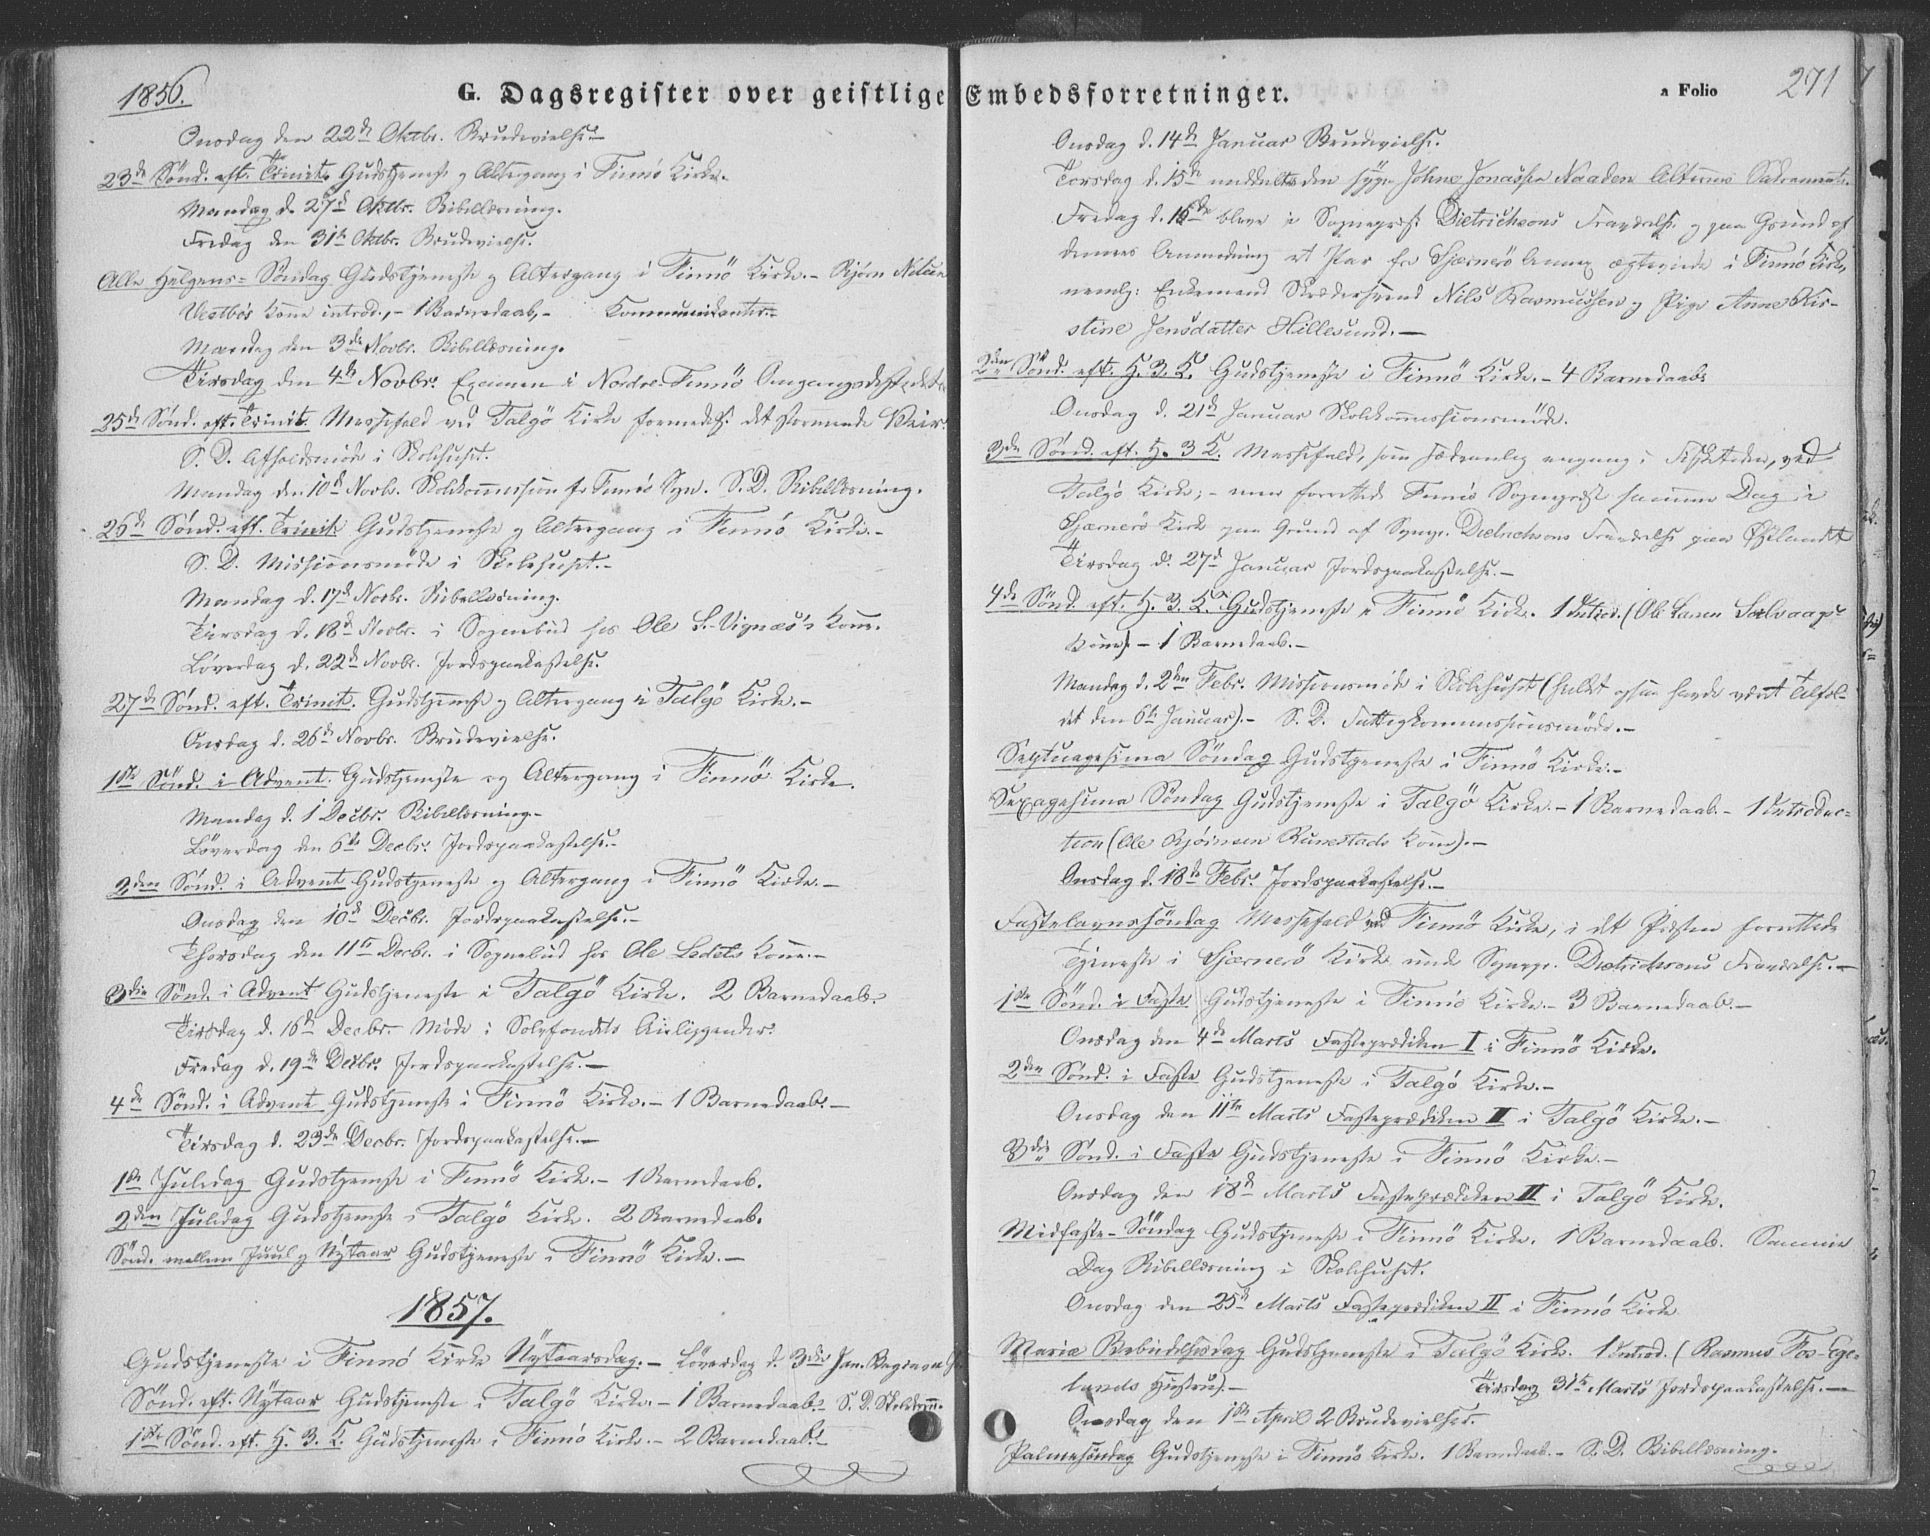 1856.
G. Dagsregister over geistlige Embedsforretninger.
a Folio 271
Onsdag den 22de Oktbr. Brudevielse.
23de Sönd. eft. Trinit. Gudstjeneste og Altergang i Finnö Kirke.
Mandag d. 27d Oktbr. Bibellæsning.
Fredag den 31te Oktbr. Brudevielse.
Alle Helgens-Söndag Gudstjeneste og Altergang i Finnö Kirke. - Bjørn Nilsen
Vestbös Kone introd., - 1 Barnedaab, - Kommunikanter.
Mandag den 3die Novbr. Bibellæsning.
Tirsdag den 4de Novbr. Examen i Nordre-Finnö Omgangsdistrikt.
25de Sönd. eft. Trinit. Messefald ved Talgö Kirke formedelst det stormende Veir.
S. D. Afholdsmöde i Skolehuset.
Mandag den 10de Novbr. Skolekommission for Finnö Sgn. S. D. Bibellæsning.
26de Sönd. eft. Trinit. Gudstjeneste og Altergang i Finnö Kirke. -
S. D. Missionsmöde i Skolehuset. -
Mandag d. 17de Novbr. Bibellæsning.
Tirsdag d. 18de Novbr. i Sognebud hos Ole S. Vignæs's Kone.
Löverdag d. 22de Novbr. Jordspaakastelse.
27de Sönd. eft. Trinit. Gudstjeneste og Altergang i Talgö Kirke. -
Onsdag d. 26de Novbr. Brudevielse.
1ste Sönd. i Advent. Gudstjeneste og Altergang i Finnö Kirke.
Mandag d. 1 Decbr. Bibellæsning. -
Löverdag den 6te Decbr. Jordspaakastelse. -
2den Sönd. i Advent Gudstjeneste og Altergang i Finnö Kirke. -
Onsdag den 10de Decbr. Jordspaakastelse. -
Thorsdag den 11te Decbr. i Sognebud hos Ole Ladets Kone. -
3die Sönd. i Advent Gudstjeneste i Talgö Kirke. 2 Barnedaab.
Tirsdag d. 16de Decbr. Möde i
Fredag d. 19de Decbr. Jordspaakastelse. -
4de Sönd. i Advent Gudstjeneste i Finnö Kirke. - 1 Barnedaab. -
Tirsdag d. 23de Decbr. Jordspaakastelse. -
1ste Juledag Gudstjeneste i Finnö Kirke. - 1 Barnedaab.
2den Juledag Gudstjeneste i Talgö Kirke. 2 Barnedaab.
Sönd. mellem Juul og Nytaar Gudstjeneste i Finnö Kirke. -
1857.
Gudstjeneste i Finnö Kirke Nytaarsdag. - Löverdag d. 3die Jan.
Sönd. eft. Nytaar Gudstjeneste i Talgö Kirke. - 1 Barnedaab. - S. D.
1ste Sönd. eft. H. 3. K. Gudstjeneste i Finnö Kirke. - 2 Barnedaab. -
Onsdag d. 14de Januar Brudevielse.
Torsdag d. 15de meddeltes den syge Johne Jonassen Naaden Alterens Sakramente.
Fredag d. 16de bleve i Sognepræst Dietrichsons Fraværelse og paa Grund af
dennes Anmodning et Par fra Sjærnerö Annex ægteviede i Finnö Kirke,
nemlig: Enkemand Nils Rasmussen og Pige Anne Kir-
stine Jensdatter Hillesund. -
2den Sönd. eft. H. 3. K. Gudstjeneste i Finnö Kirke. - 4 Barnedaab.
Onsdag d. 21de Januar Skolekommissionsmöde.
3die Sönd. eft. H. 3 K. Messefald, som sædvanlig engang i Fisketiden, ved
Talgö Kirke; - men forrettede Finnö Sognepræst samme Dag i
Sjærnerö Kirke paa Grund af Sognpr. Dietrichsons Fraværelse paa Østlandet
Tirsdag d. 27de Januar Jordspaakastelse. -
4de Sönd. eft. H. 3. K. Gudstjeneste i Finnö Kirke. 1 Introd. (Ole Larsen
Kone) - 1 Barnedaab. -
Mandag d. 2den Febr. Missionsmöde i Skolehuset (hvilket ogsaa havde været afhol-
det den 6te Januar). - S. D. Fattigkommissionsmöde. -
Septuagesima Söndag Gudstjeneste i Finnö Kirke. -
Sexagesima Söndag Gudstjeneste i Talgö Kirke. - 1 Barnedaab. - 1 Introduc-
tion (Ole Bjørnsen Runestads Kone). -
Onsdag d. 18de Febr. Jordspaakastelse. -
Fastelavnssöndag Messefald ved Finnö Kirke, i det Præsten forrettede
Tjeneste i Sjærnerö Kirke under Sognpr. Dietrichsons Fraværelse. -
1ste Sönd. i Faste Gudstjeneste i Finnö Kirke. - 3 Barnedaab. -
Onsdag den 4de Marts Fasteprædiken I i Finnö Kirke.
2den Sönd. i Faste Gudstjeneste i Talgö Kirke. -
Onsdag den 11te Marts Fasteprædiken II i Talgö Kirke. -
3die Sönd. i Faste Gudstjeneste i Finnö Kirke. -
Onsdag den 18de Marts Fasteprædiken II i Talgö Kirke.
Midfaste-Söndag Gudstjeneste i Finnö Kirke. 1 Barnedaab. Samme
Dag Bibellæsning i Skolehuset.
Onsdag den 25de Marts Fasteprædiken II i Finnö Kirke
Mariæ Bebudelsesdag Gudstjeneste i Talgö Kirke. 1 Introd. (Rasmus Fos-Ege-
lands Hustru). - Tirsdag 31te Marts Jordspaakastelse. -
Onsdag den 1ste April 2 Brudevielser.
Palmesöndag Gudstjeneste i Finnö Kirke. 1 Barnedaab. - S. D. Bibellæsning.